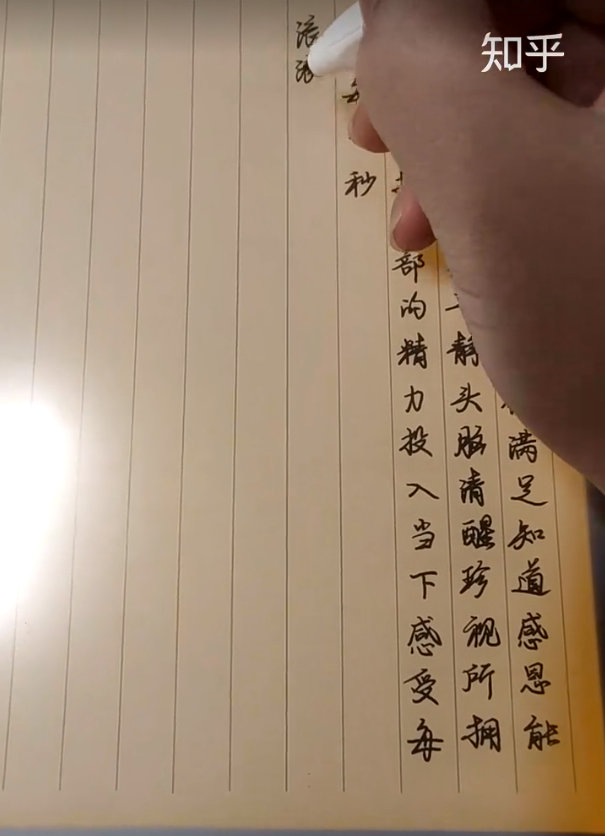 知乎
满足知道感恩能
静头脑清醒珍视所拥
部的精力投入当下感受每
秒